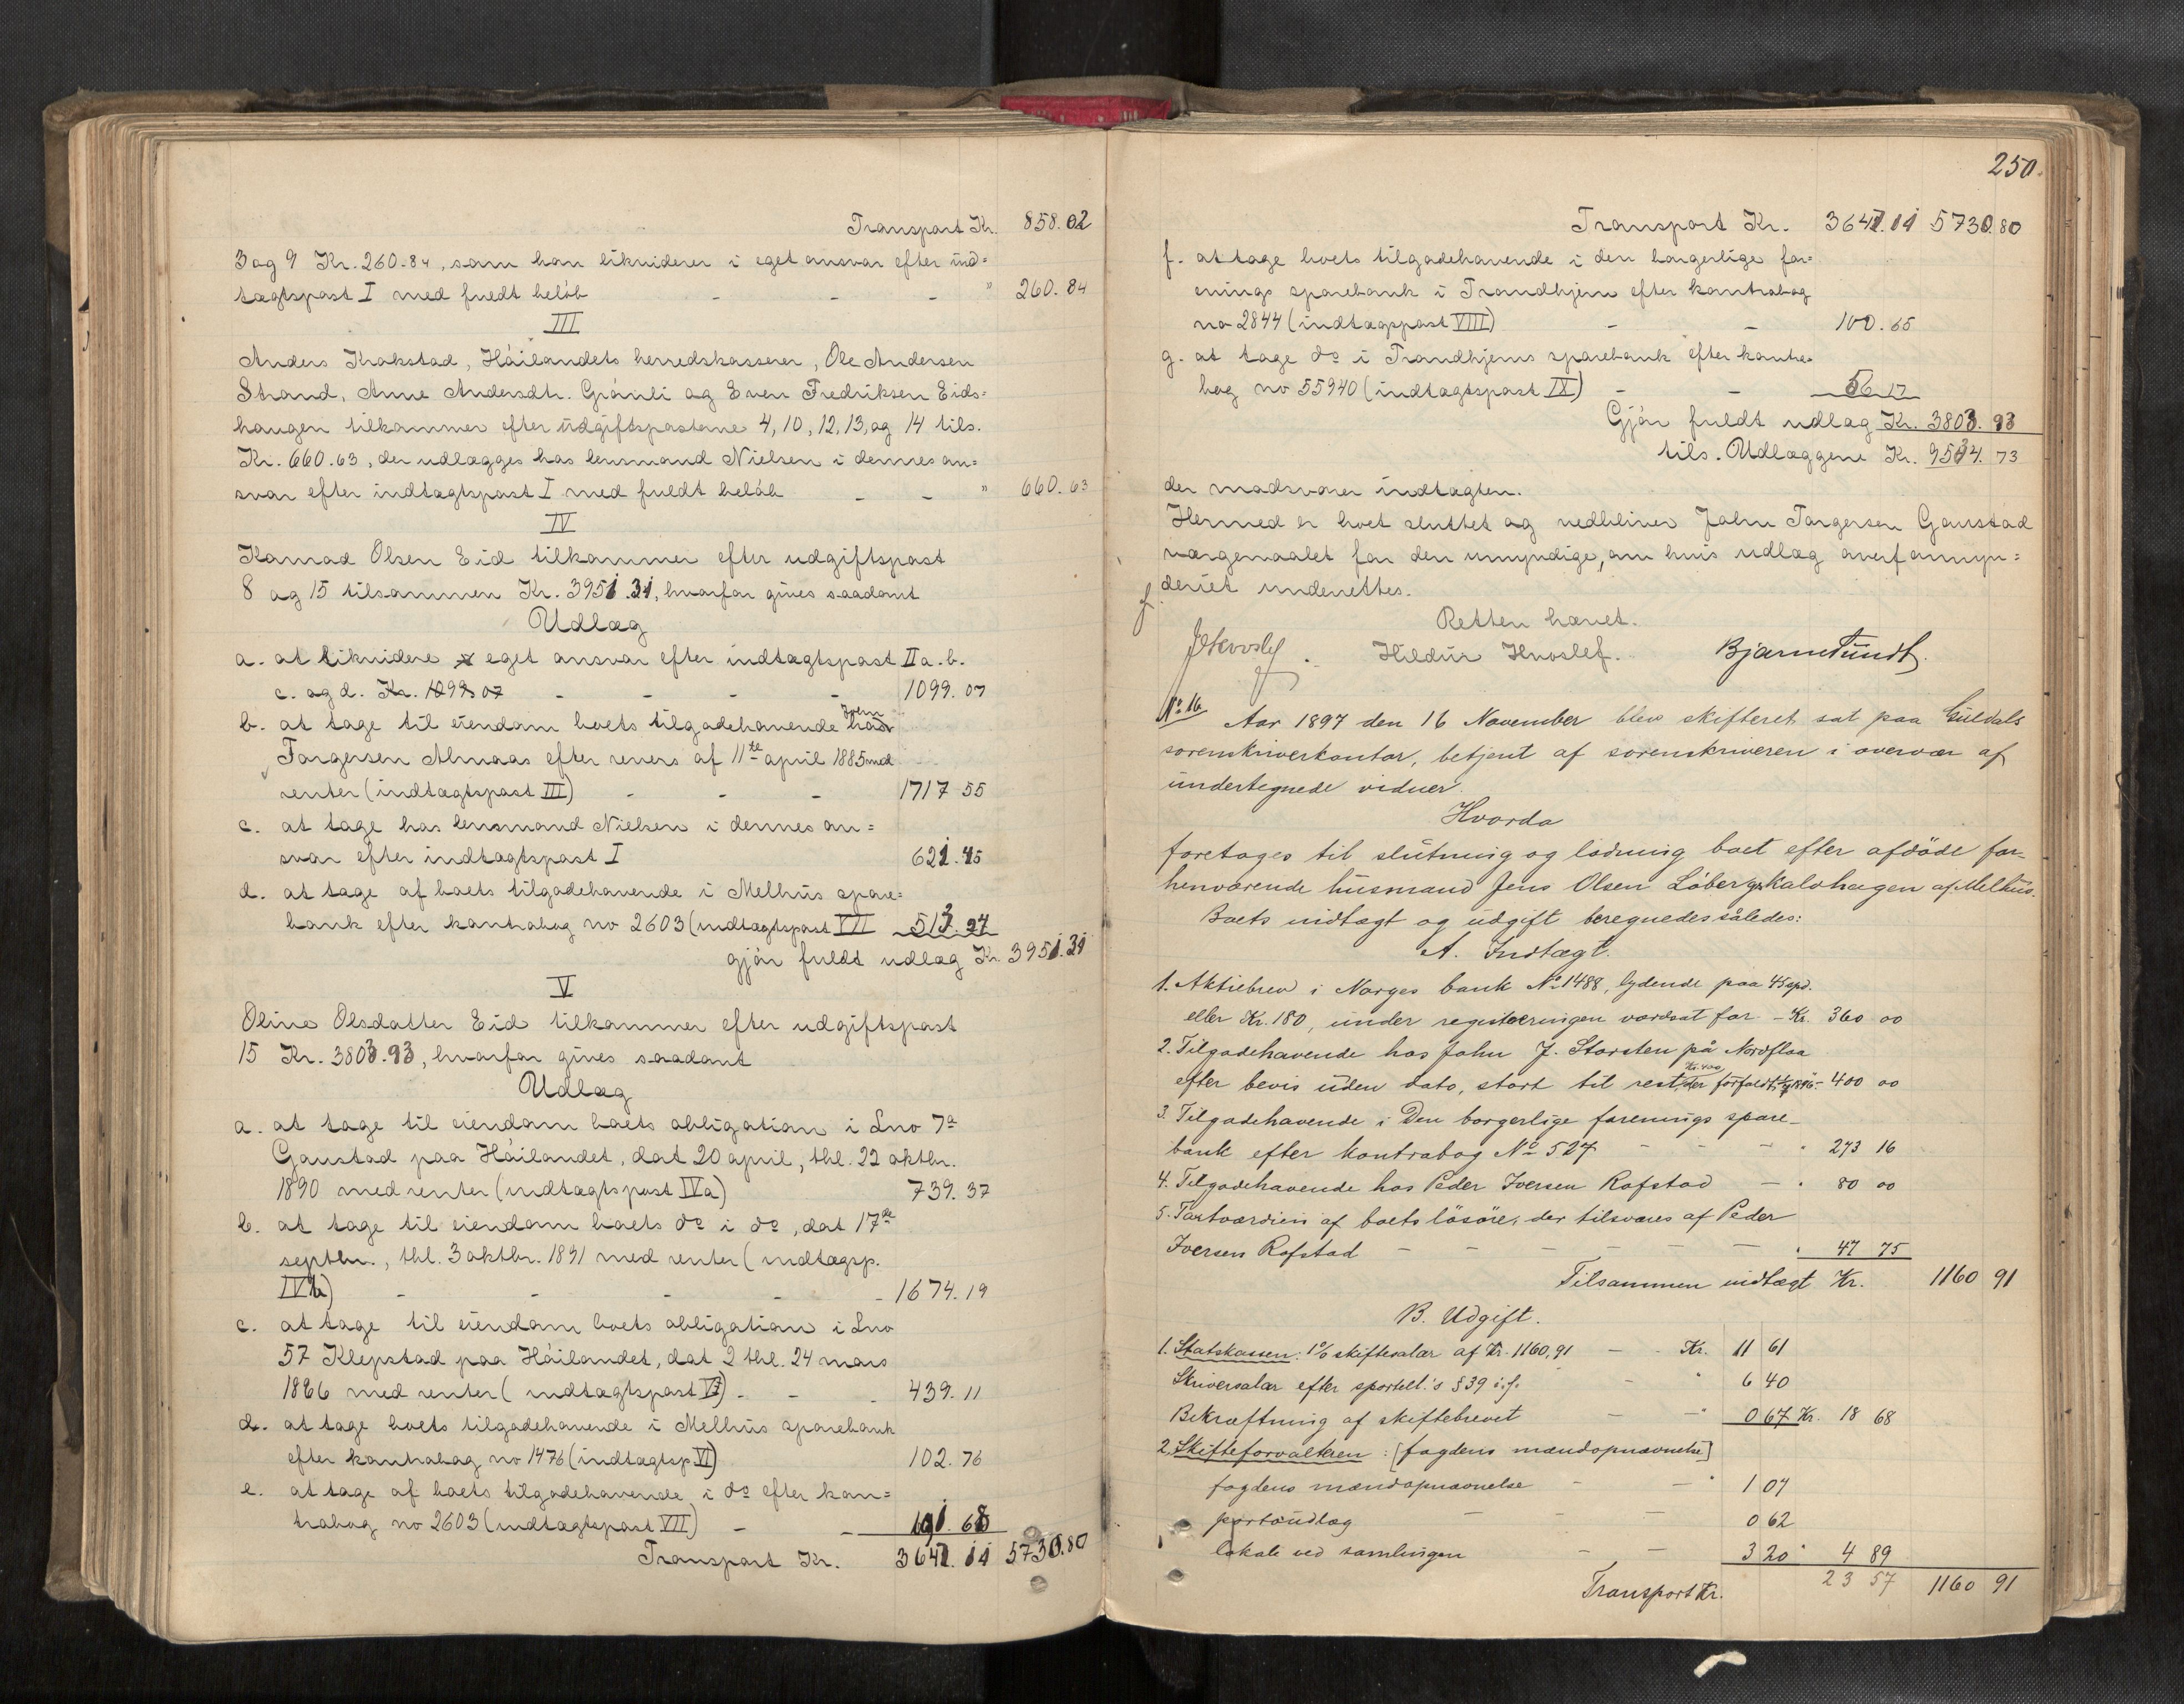 Transport Kr. 858.02
3 og 9 Kr. 260.84, som han likviderer i eget ansvar efter ind=
tægtspost I med fuldt beløb - - - " 260.84
III
Anders Krokstad, Høilandets herredskasserer, Ole Andersen
Strand, Anne Andersdtr. Grønli og Even Fredriksen Eids=
haugen tilkommer efter udgiftsposterne 4, 10, 12, 13, og 14 tils.
Kr. 660.63, der udlægges hos lensmand Nielsen i dennes an=
svar efter indtægtspost I med fuldt beløb - - " 660.63
IV
Konrad Olsen Eid tilkommer efter udgiftspost
8 og 15 tilsammen Kr. 3951.31, hvorfor gives saadant
Udlæg
a. at likvidere i eget ansvar efter indtægtspost II a. b.
c. og d. Kr. 1099.07 - - - - 1099.07
b. at tage til eiendom boets tilgodehavende hos John
Torgersen Almaas efter revers af 11te april 1885 med
renter (indtægtspost III) - - - 1717 55
c. at tage hos lensmand Nielsen i dennes an=
svar efter indtægtspost I 621.45
d. at tage af boets tilgodehavende i Melhus spare=
bank efter kontrabog no 2603 (indtægtspost VII 513.24
gjør fuldt udlæg Kr. 3951.31
V
Oline Olsdatter Eid tilkommer efter udgiftspost
15 Kr. 3803.93, hvorfor gives saadant
Udlæg
a. at tage til eiendom boets obligation i Lno 7a
Gaustad paa Høilandet, dat 20 april, thl. 22 oktbr.
1890 med renter (indtægtspost IV a) 739.37
b. at tage til eiendom boets do i do, dat 17de
septbr., thl. 3 oktbr. 1891 med renter (indtægsp.
IV b) - - - - - 1674.19
c. at tage til eiendom boets obligation i Lno
57 Klepstad paa Høilandet, dat 2 thl. 24 mars
1886 med renter (indtægtspost V) - - - 439.11
d. at tage boets tilgodehavende i Melhus sparebank
efter kontrabog no 1476 (indtægtsp VI) 102.76
e. at tage af boets tilgodehavende i do efter kon=
trabog no 2603 (indtægtspost VII) - - 691.68
Transport Kr. 3647.11 5730.80
250.
Transport Kr. 3647.11 5730.80
f. at tage boets tilgodehavende i den borgerlige for=
enings sparebank i Trondhjem efter kontrabog
no 2844 (indtægspost VIII) - - 100.65
g. at tage do i Trondhjems sparebank efter kontra=
bog no 55940 (indtægtspost IX) - - 56 17
Gjør fuldt udlæg Kr. 3803.93
tils. Udlæggene Kr. 9534.73
der modsvarer indtægten.
Hermed er boet sluttet og vedbliver John Torgersen Gaustad
værgemaalet for den umyndige, om hvis udlæg overformyn=
deriet underrettes.
Retten hævet.
Hildur Hvoslef. Bjarne Lundt.
No 16
Aar 1897 den 16 November blev skifteret sat paa Guldals
sorenskriverkontor, betjent af sorenskriveren i overvær af
undertegnede vidner.
Hvorda
foretoges til slutning og lodning boet efter afdøde for-
henværende husmand Jens Olsen Løbergskalvhagen af Melhus.
Boets indtægt og udgift beregnedes således:
A. Indtægt.
1. Aktiebrev i Norges bank No 1488, lydende paa 45 spd.
eller Kr. 180, under registreringen vordsat for - Kr. 360 00
2. Tilgodehavende hos John J. Storsten på Nordflaa
efter bevis uden dato, stort til rest Kr. 400, der forfaldt 1896. - 400 00
3. Tilgodehavende i Den borgerlige forenings spare-
bank efter kontrabog No 527 - - - " 273 16
4. Tilgodehavende hos Peder Iversen Rofstad - " 80 00
5. Taxtværdien af boets løsøre, der tilsvares af Peder
Iversen Rofstad - - - - - - " 47 75
Tilsammen indtægt Kr. 1160 91
B. Udgift.
1. Statskassen: 1% skiftesalær af Kr. 1160,91 - - Kr. 11 61
Skriversalær efter sportell.'s § 39 i.f. - " 6 40
Bekræftning af skiftebrevet - - " 0 67 Kr. 18 68
2. Skifteforvalteren: [fogdens mændopnævnelse]
fogdens mændopnævnelse - - " 1 07
portoudlæg - - - 0 62
lokale ved samlingen - - 3 20 " 4 89
Transport Kr. 23 57 1160 91